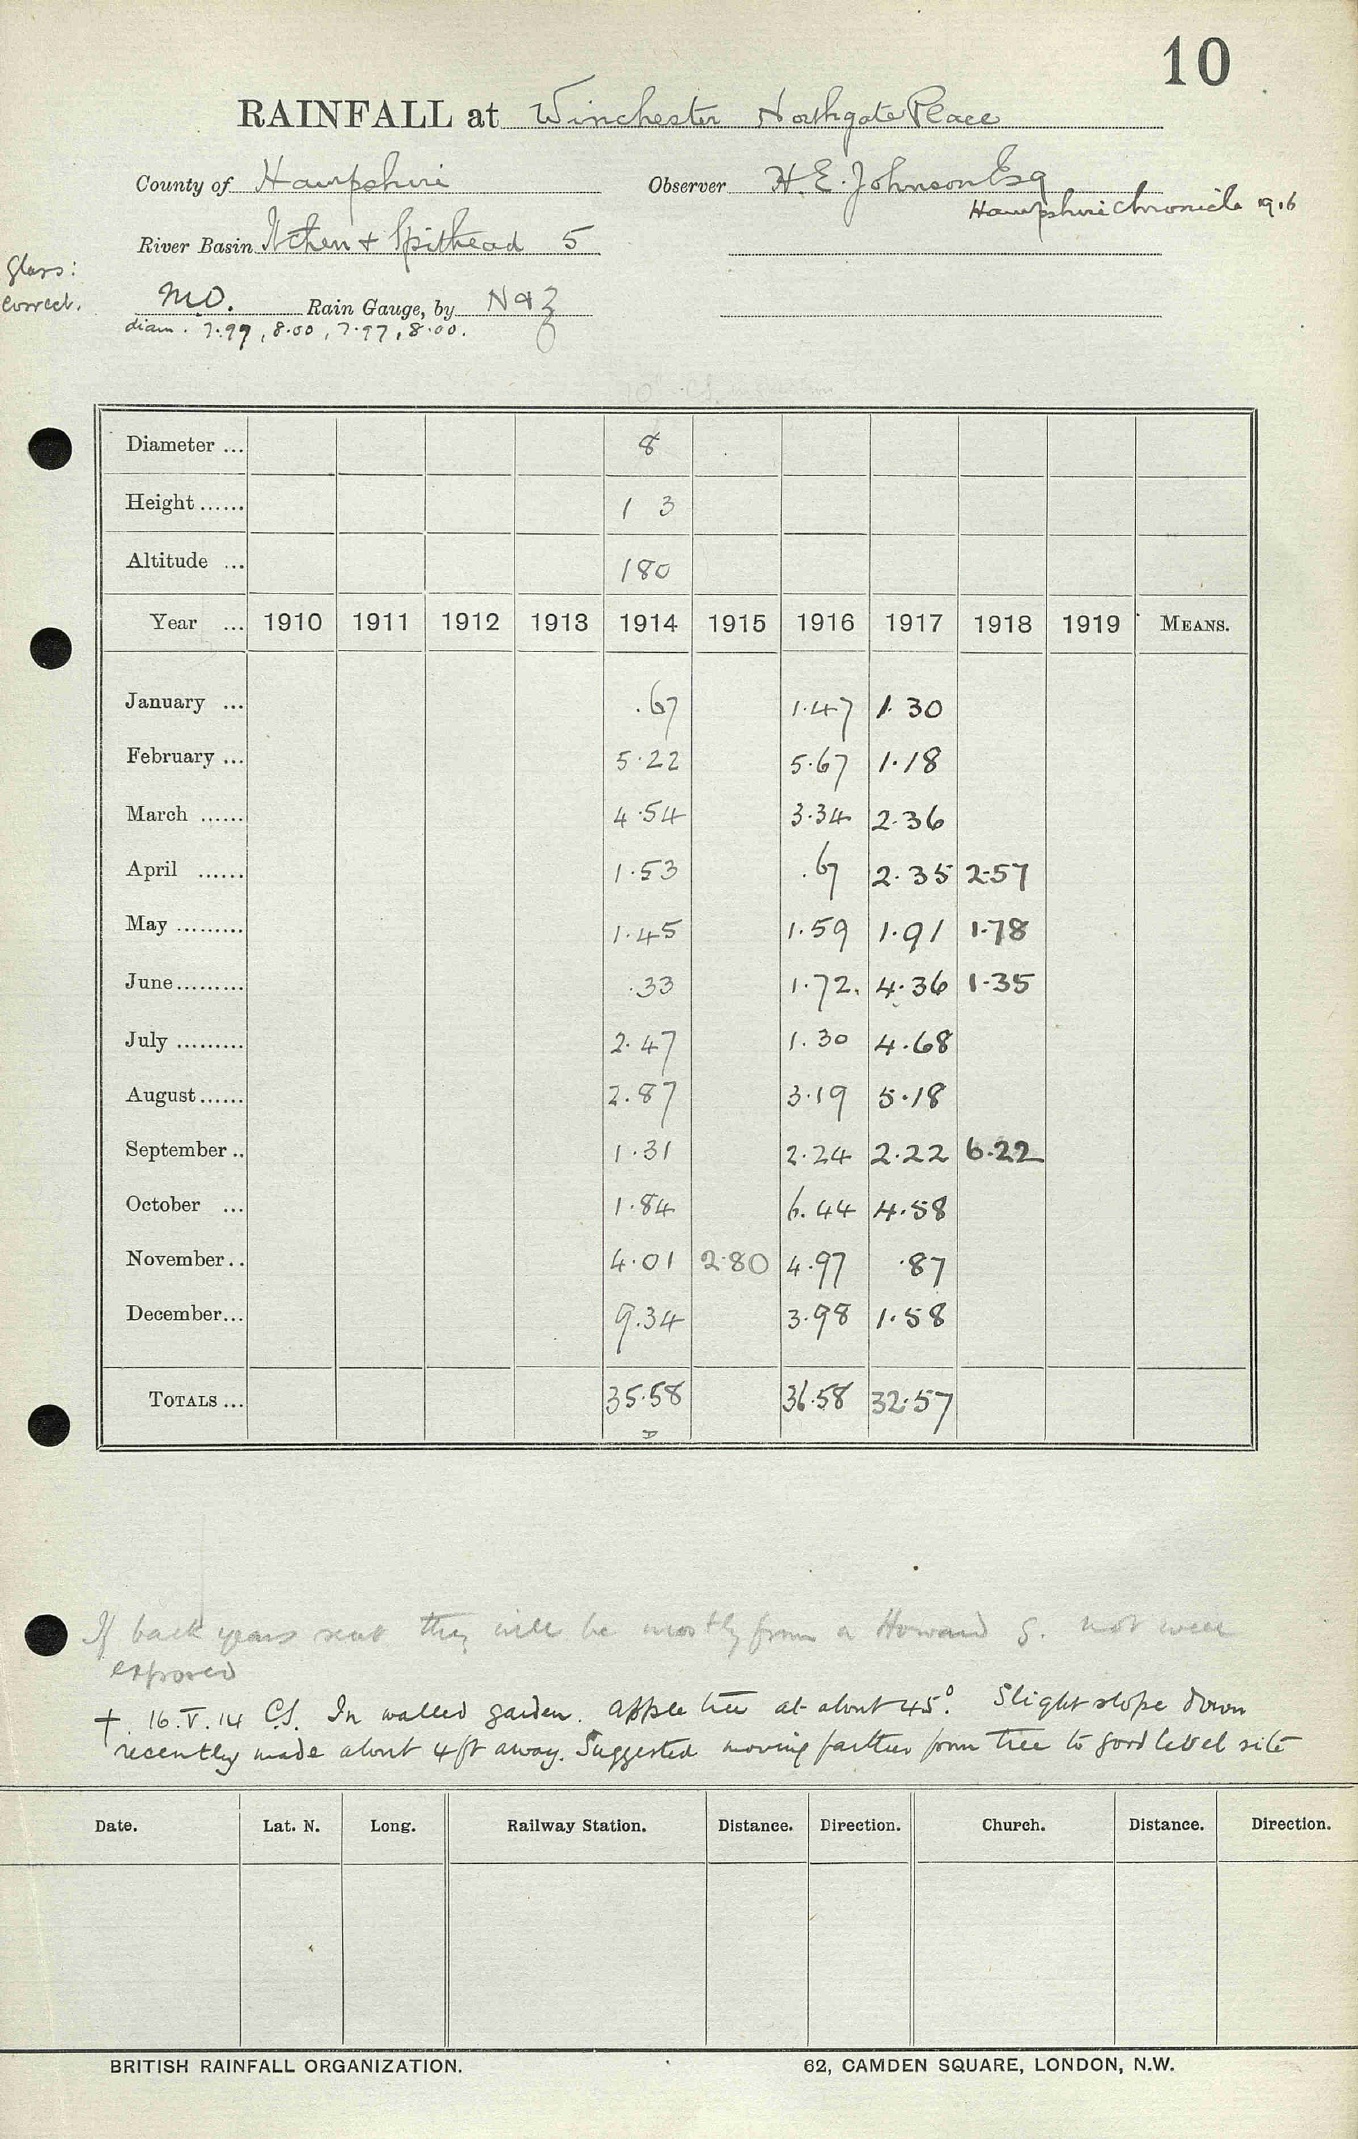 10
RAINFALL at Winchester Northgate Place
County of Hampshire Observer H. E. Johnson Esq
Hampshire Chronicle 1916
River Basin Itchen & Spithead 5
Glass:
correct.
M.O. Rain Gauge, by N & Z
diam. 7.99, 8.00, 7.97, 8.00.
Diameter ... 8
Height ...... 1 3
Altitude ... 180
Year ... 1910 1911 1912 1913 1914 1915 1916 1917 1918 1919 MEANS.
January ... .67 1.47 1.30
February ... 5.22 5.67 1.18
March ...... 4.54 3.34 2.36
April ...... 1.53 .67 2.35 2.57
May ......... 1.45 1.59 1.91 1.78
June ......... .33 1.72. 4.36 1.35
July ......... 2.47 1.30 4.68
August ...... 2.87 3.19 5.18
September .. 1.31 2.24 2.22 6.22
October ... 1.84 6.44 4.58
November .. 4.01 2.80 4.97 .87
December ... 9.34 3.98 1.58
TOTALS ... 35.58 36.58 32.57
If back years sent they will be mostly from a Howard g. not well
exposed
†. 16.V.14 C.S. In walled garden. apple tree at about 45°. Slight slope down
recently made about 4 ft away. Suggested moving farther from tree to good level site
Date. Lat. N. Long. Railway Station. Distance. Direction. Church. Distance. Direction.
BRITISH RAINFALL ORGANIZATION. 62, CAMDEN SQUARE, LONDON, N.W.